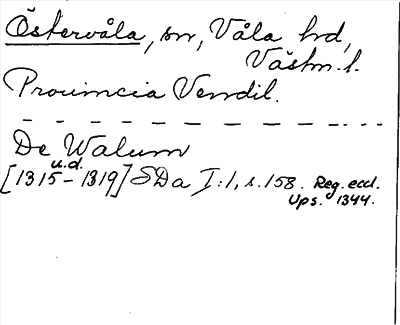 Östervåla, sn, Våla hd,
Västm. l.
Prouincia Vendil.
De Walum
u.d.
[1315-1319] SDa I:1, s. 158. Reg. eccl.
Ups. 1344.